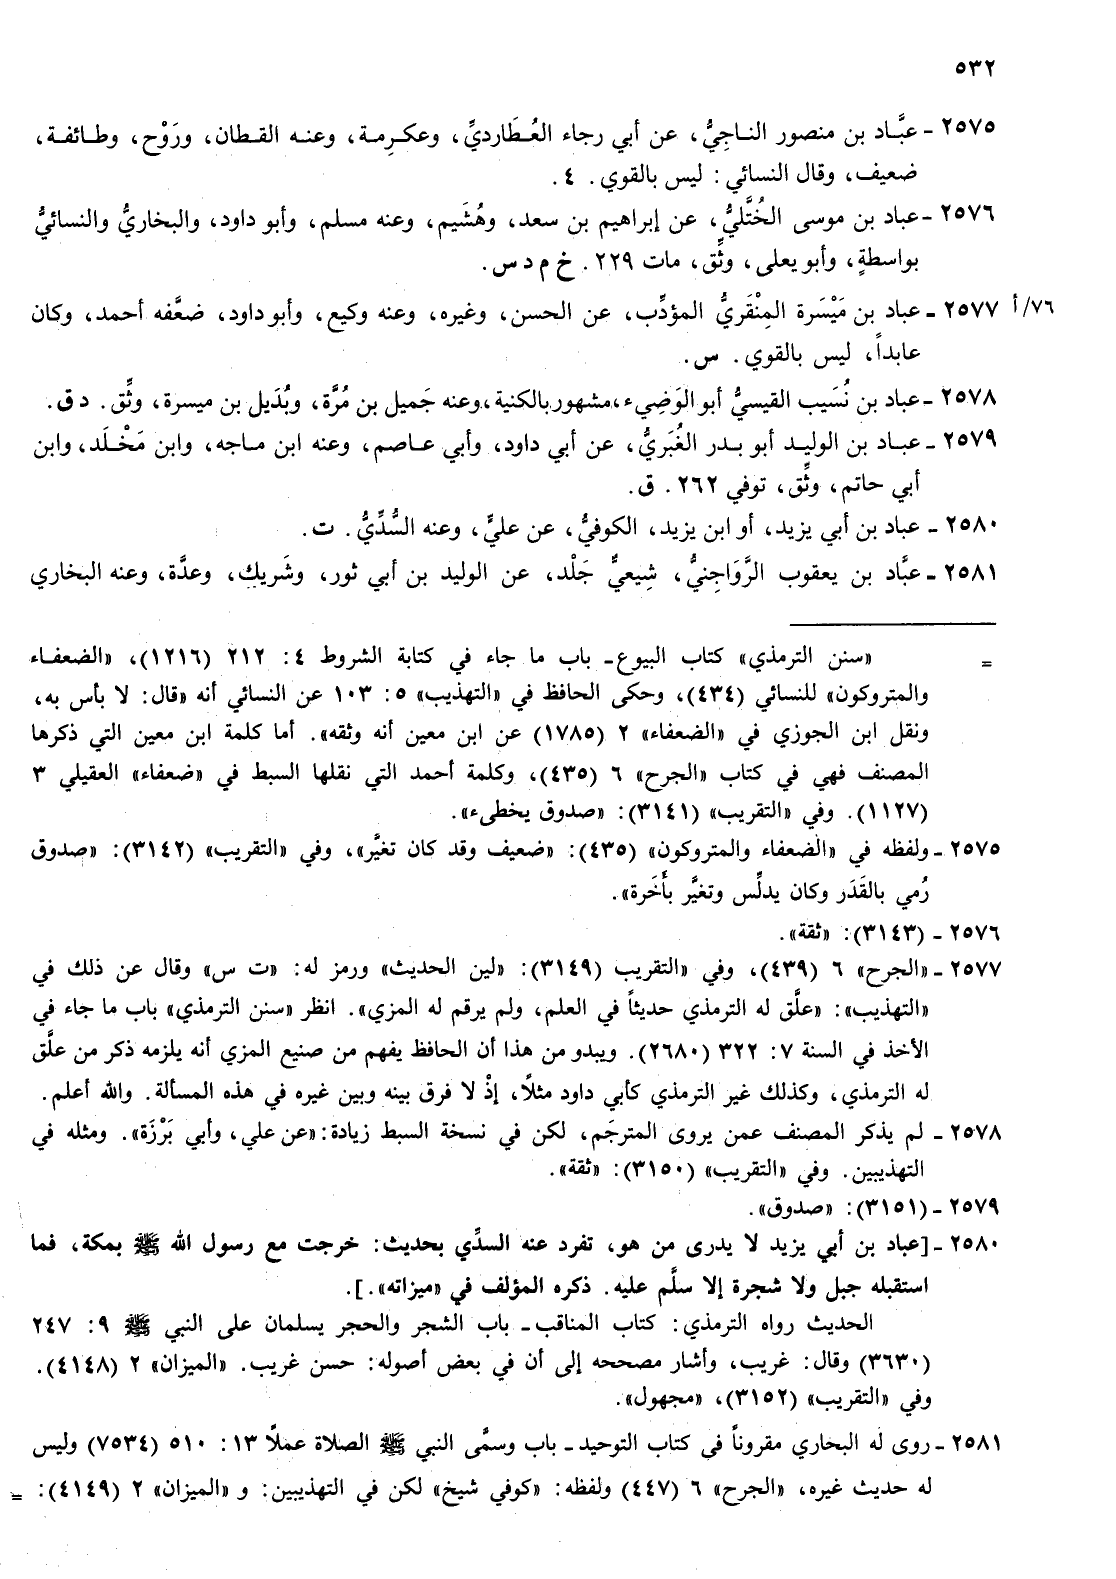 ٥٣٢
٢٥٧٥ - عبَّـاد بن منصور النـاجِيُّ، عن أبي رجاء العُـطَارديِّ، وعكـرِمـة، وعنـه القـطان، ورَوْح، وطـائفـة،
ضعيف، وقال النسائي: ليس بالقوي. ٤.
٢٥٧٦ - عباد بن موسى الخُتَّليُّ، عن إبراهيم بن سعد، وهُشَيم، وعنه مسلم، وأبو داود، والبخاريُّ والنسائيُّ
بواسطةٍ، وأبو يعلى، وثِّق، مات ٢٢٩. خ م د س.
٧٦/أ ٢٥٧٧ - عباد بن مَيْسَرة المِنْقَريُّ المؤدِّب، عن الحسن، وغيره، وعنه وكيع، وأبو داود، ضعَّفه أحمد، وكان
عابداً، ليس بالقوي. س.
٢٥٧٨ - عباد بن نُسَيب القيسيُّ أبو الوَضِيء، مشهور بالكنية، وعنه جَميل بن مُرَّة، وبُدَيل بن ميسرة، وثِّق. د ق.
٢٥٧٩ - عبـاد بن الوليـد أبو بـدر الغُبَريُّ، عن أبي داود، وأبي عـاصم، وعنه ابن مـاجه، وابن مَخْـلَد، وابن
أبي حاتم، وثِّق، توفي ٢٦٢. ق.
٢٥٨٠ - عباد بن أبي يزيد، أو ابن يزيد، الكوفيُّ، عن عليٍّ، وعنه السُّدِّيُّ. ت.
٢٥٨١ - عبَّاد بن يعقوب الرَّوَاجِنيُّ، شِيعيٌّ جَلْد، عن الوليد بن أبي ثور، وشَريك، وعدَّة، وعنه البخاري
= «سنن الترمذي» كتاب البيوع - باب ما جاء في كتابة الشروط ٤: ٢١٢ (١٢١٦)، «الضعفـاء
والمتروكون» للنسائي (٤٣٤)، وحكى الحافظ في «التهذيب» ٥: ١٠٣ عن النسائي أنه «قال: لا بأس به،
ونقل ابن الجوزي في «الضعفاء» ٢ (١٧٨٥) عن ابن معين أنه وثقه». أما كلمة ابن معين التي ذكرها
المصنف فهي في كتاب «الجرح» ٦ (٤٣٥)، وكلمة أحمد التي نقلها السبط في «ضعفاء» العقيلي ٣
(١١٢٧). وفي «التقريب» (٣١٤١): «صدوق يخطىء».
٢٥٧٥ - ولفظه في «الضعفاء والمتروكون» (٤٣٥): «ضعيف وقد كان تغيَّر»، وفي «التقريب» (٣١٤٢): «صدوق
رُمي بالقَدَر وكان يدلِّس وتغيَّر بأَخَرة».
٢٥٧٦ - (٣١٤٣): «ثقة».
٢٥٧٧ - «الجرح» ٦ (٤٣٩)، وفي «التقريب (٣١٤٩): «لين الحديث» ورمز له: «ت س» وقال عن ذلك في
«التهذيب»: «علَّق له الترمذي حديثاً في العلم، ولم يرقم له المزي». انظر «سنن الترمذي» باب ما جاء في
الأخذ في السنة ٧: ٣٢٢ (٢٦٨٠). ويبدو من هذا أن الحافظ يفهم من صنيع المزي أنه يلزمه ذكر من علَّق
له الترمذي، وكذلك غير الترمذي كأبي داود مثلاً، إذْ لا فرق بينه وبين غيره في هذه المسألة. والله أعلم.
٢٥٧٨ - لم يذكر المصنف عمن يروى المترجَم، لكن في نسخة السبط زيادة: «عن علي، وأبي بَرْزَة». ومثله في
التهذيبين. وفي «التقريب» (٣١٥٠): «ثقة».
٢٥٧٩ - (٣١٥١): «صدوق».
٢٥٨٠ - [عباد بن أبي يزيد لا يدرى من هو، تفرد عنه السدِّي بحديث: خرجت مع رسول الله ﷺ بمكة، فما
استقبله جبل ولا شجرة إلا سلَّم عليه. ذكره المؤلف في «ميزانه».].
الحديث رواه الترمذي: كتاب المناقب - باب الشجر والحجر يسلمان على النبي ﷺ ٩: ٢٤٧
(٣٦٣٠) وقال: غريب، وأشار مصححه إلى أن في بعض أصوله: حسن غريب. «الميزان» ٢ (٤١٤٨).
وفي «التقريب» (٣١٥٢)، «مجهول».
٢٥٨١ - روى له البخاري مقروناً في كتاب التوحيد - باب وسمَّى النبي ﷺ الصلاة عملاً ١٣: ٥١٠ (٧٥٣٤) وليس
له حديث غيره، «الجرح» ٦ (٤٤٧) ولفظه: «كوفي شيخ» لكن في التهذيبين: و «الميزان» ٢ (٤١٤٩): =